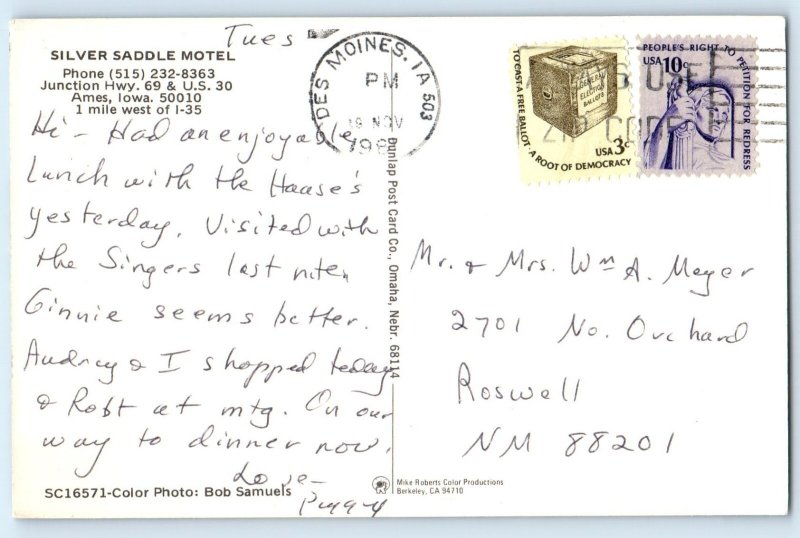 Tues
SILVER SADDLE MOTEL
Phone (515) 232-8363
Junction Hwy. 69 & U.S. 30
Ames, Iowa. 50010
1 mile west of I-35
Hi - Had an enjoyable
Lunch with the Haase's
yesterday. Visited with
the Singers last nite.
Ginnie seems better.
Audrey & I shopped today
& Robt at mtg. On our
way to dinner now.
Love -
Peggy
SC16571-Color Photo: Bob Samuels
DES MOINES, IA 503
PM
19 NOV
198
Dunlap Post Card Co., Omaha, Nebr. 68114
TO CAST A FREE BALLOT · A ROOT OF DEMOCRACY
GENERAL
ELECTION
BALLOTS
USA 3c
PEOPLE'S RIGHT TO PETITION FOR REDRESS
USA 10c
USE
ZIP CODE
Mr. & Mrs. Wm A. Meyer
2701 No. Orchard
Roswell
NM 88201
Mike Roberts Color Productions
Berkeley, CA 94710